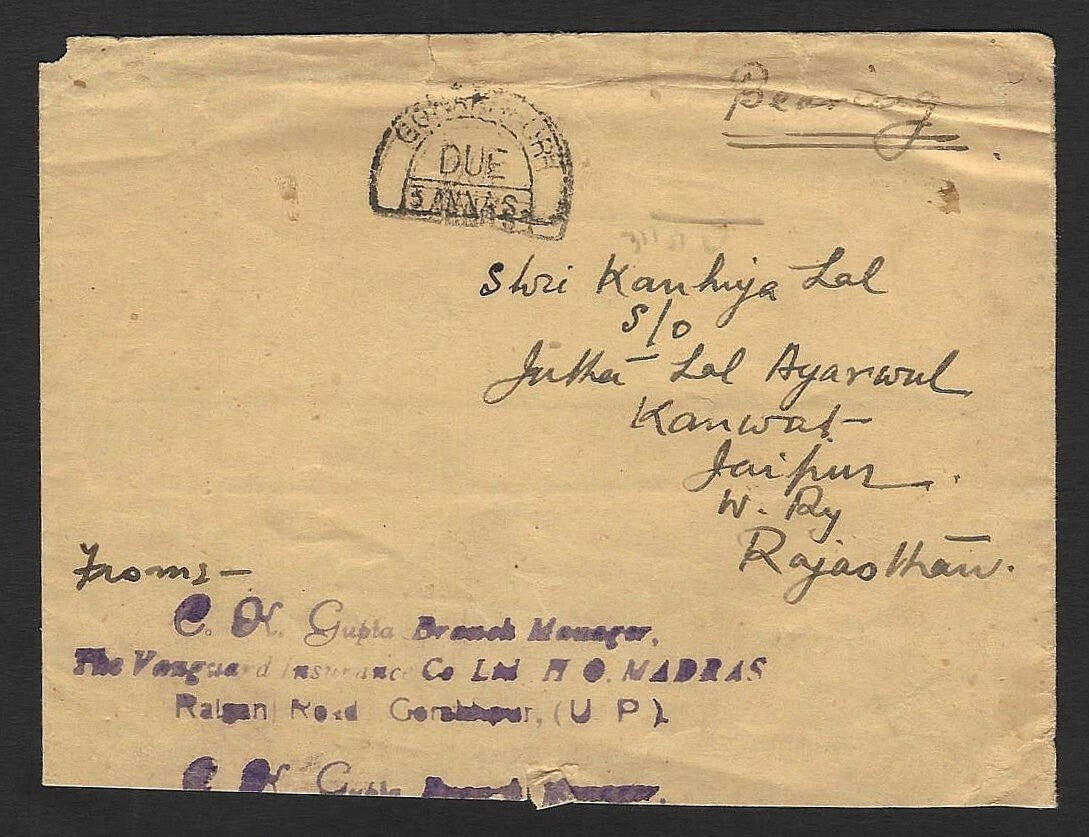 Bearing
DUE
3 ANNAS
Shri Kanhiya Lal
s/o
Jutha Lal Agarwal
Kanwat
Jaipur.
W. Ry
Rajasthan.
From:-
C. K. Gupta Branch Manager,
The Vanguard Insurance Co Ltd H O. MADRAS
Road Gorakhpur, (U P).
C. K. Gupta Branch Manager,